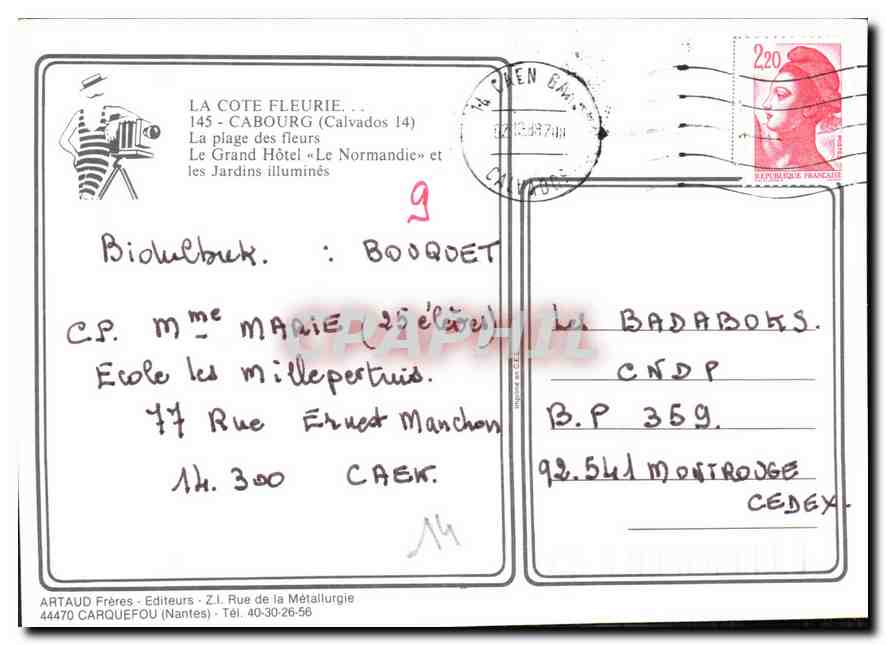 LA COTE FLEURIE. . .
145 - CABOURG (Calvados 14)
La plage des fleurs
Le Grand Hôtel «Le Normandie» et
les Jardins illuminés
9
: BOUQUET
C.P. Mme MARIE (25 élèves)
Ecole les Millepertuis.
77 Rue Ernest Manchon
14.300 CAEN.
14
ARTAUD Frères - Editeurs - Z.I. Rue de la Métallurgie
44470 CARQUEFOU (Nantes) - Tél. 40-30-26-56
CPAPHIL
14 CAEN
CALVADOS
2,20
REPUBLIQUE FRANÇAISE
Les BADABOKS.
CNDP
B.P 359.
92.541 MONTROUGE
CEDEX.